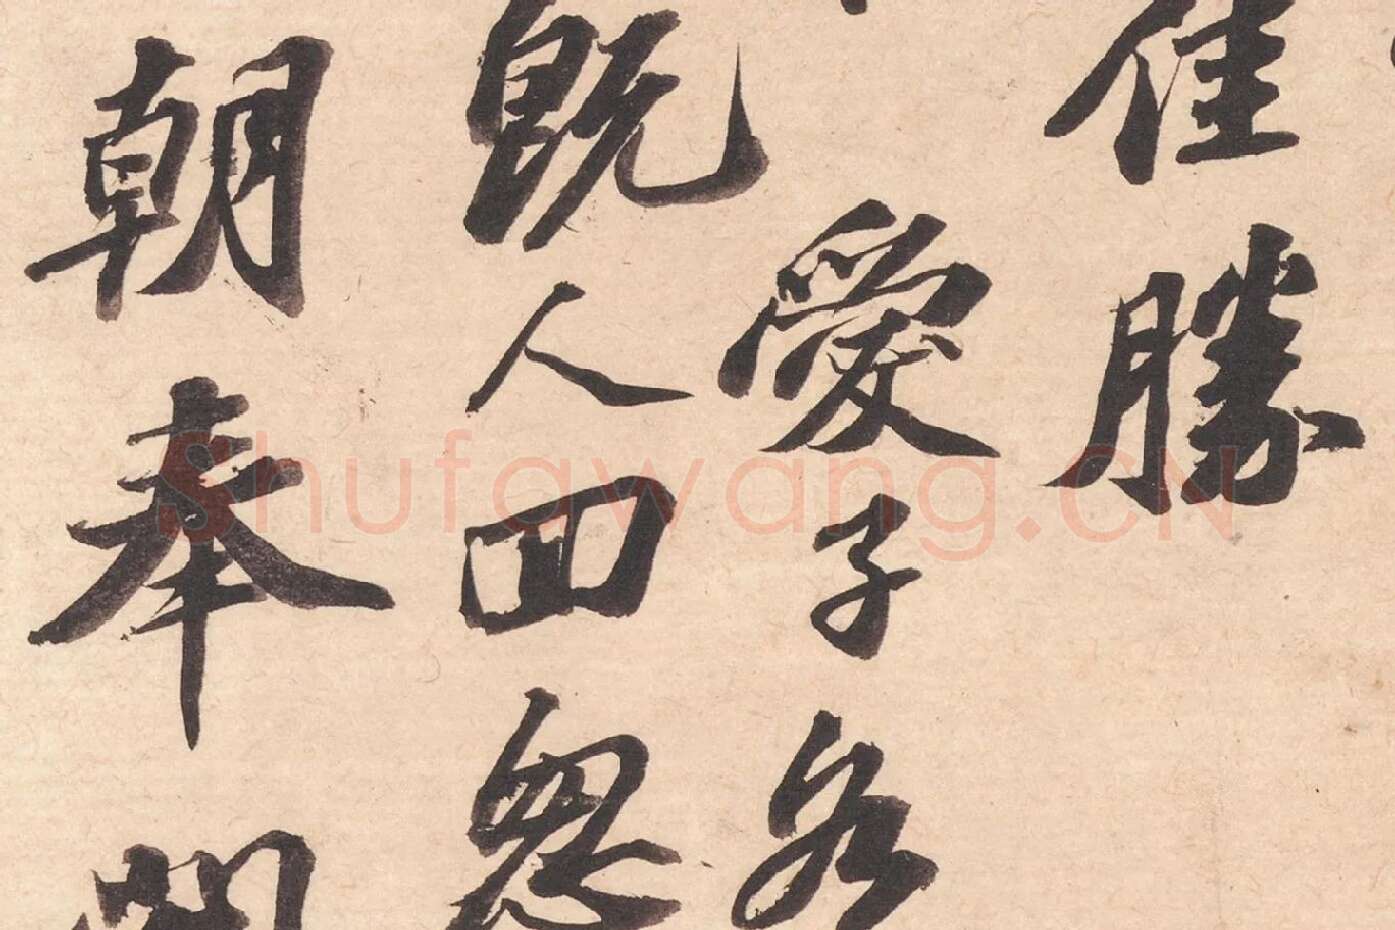 佳勝
愛子
既人回
朝奉
Shufawang.CN